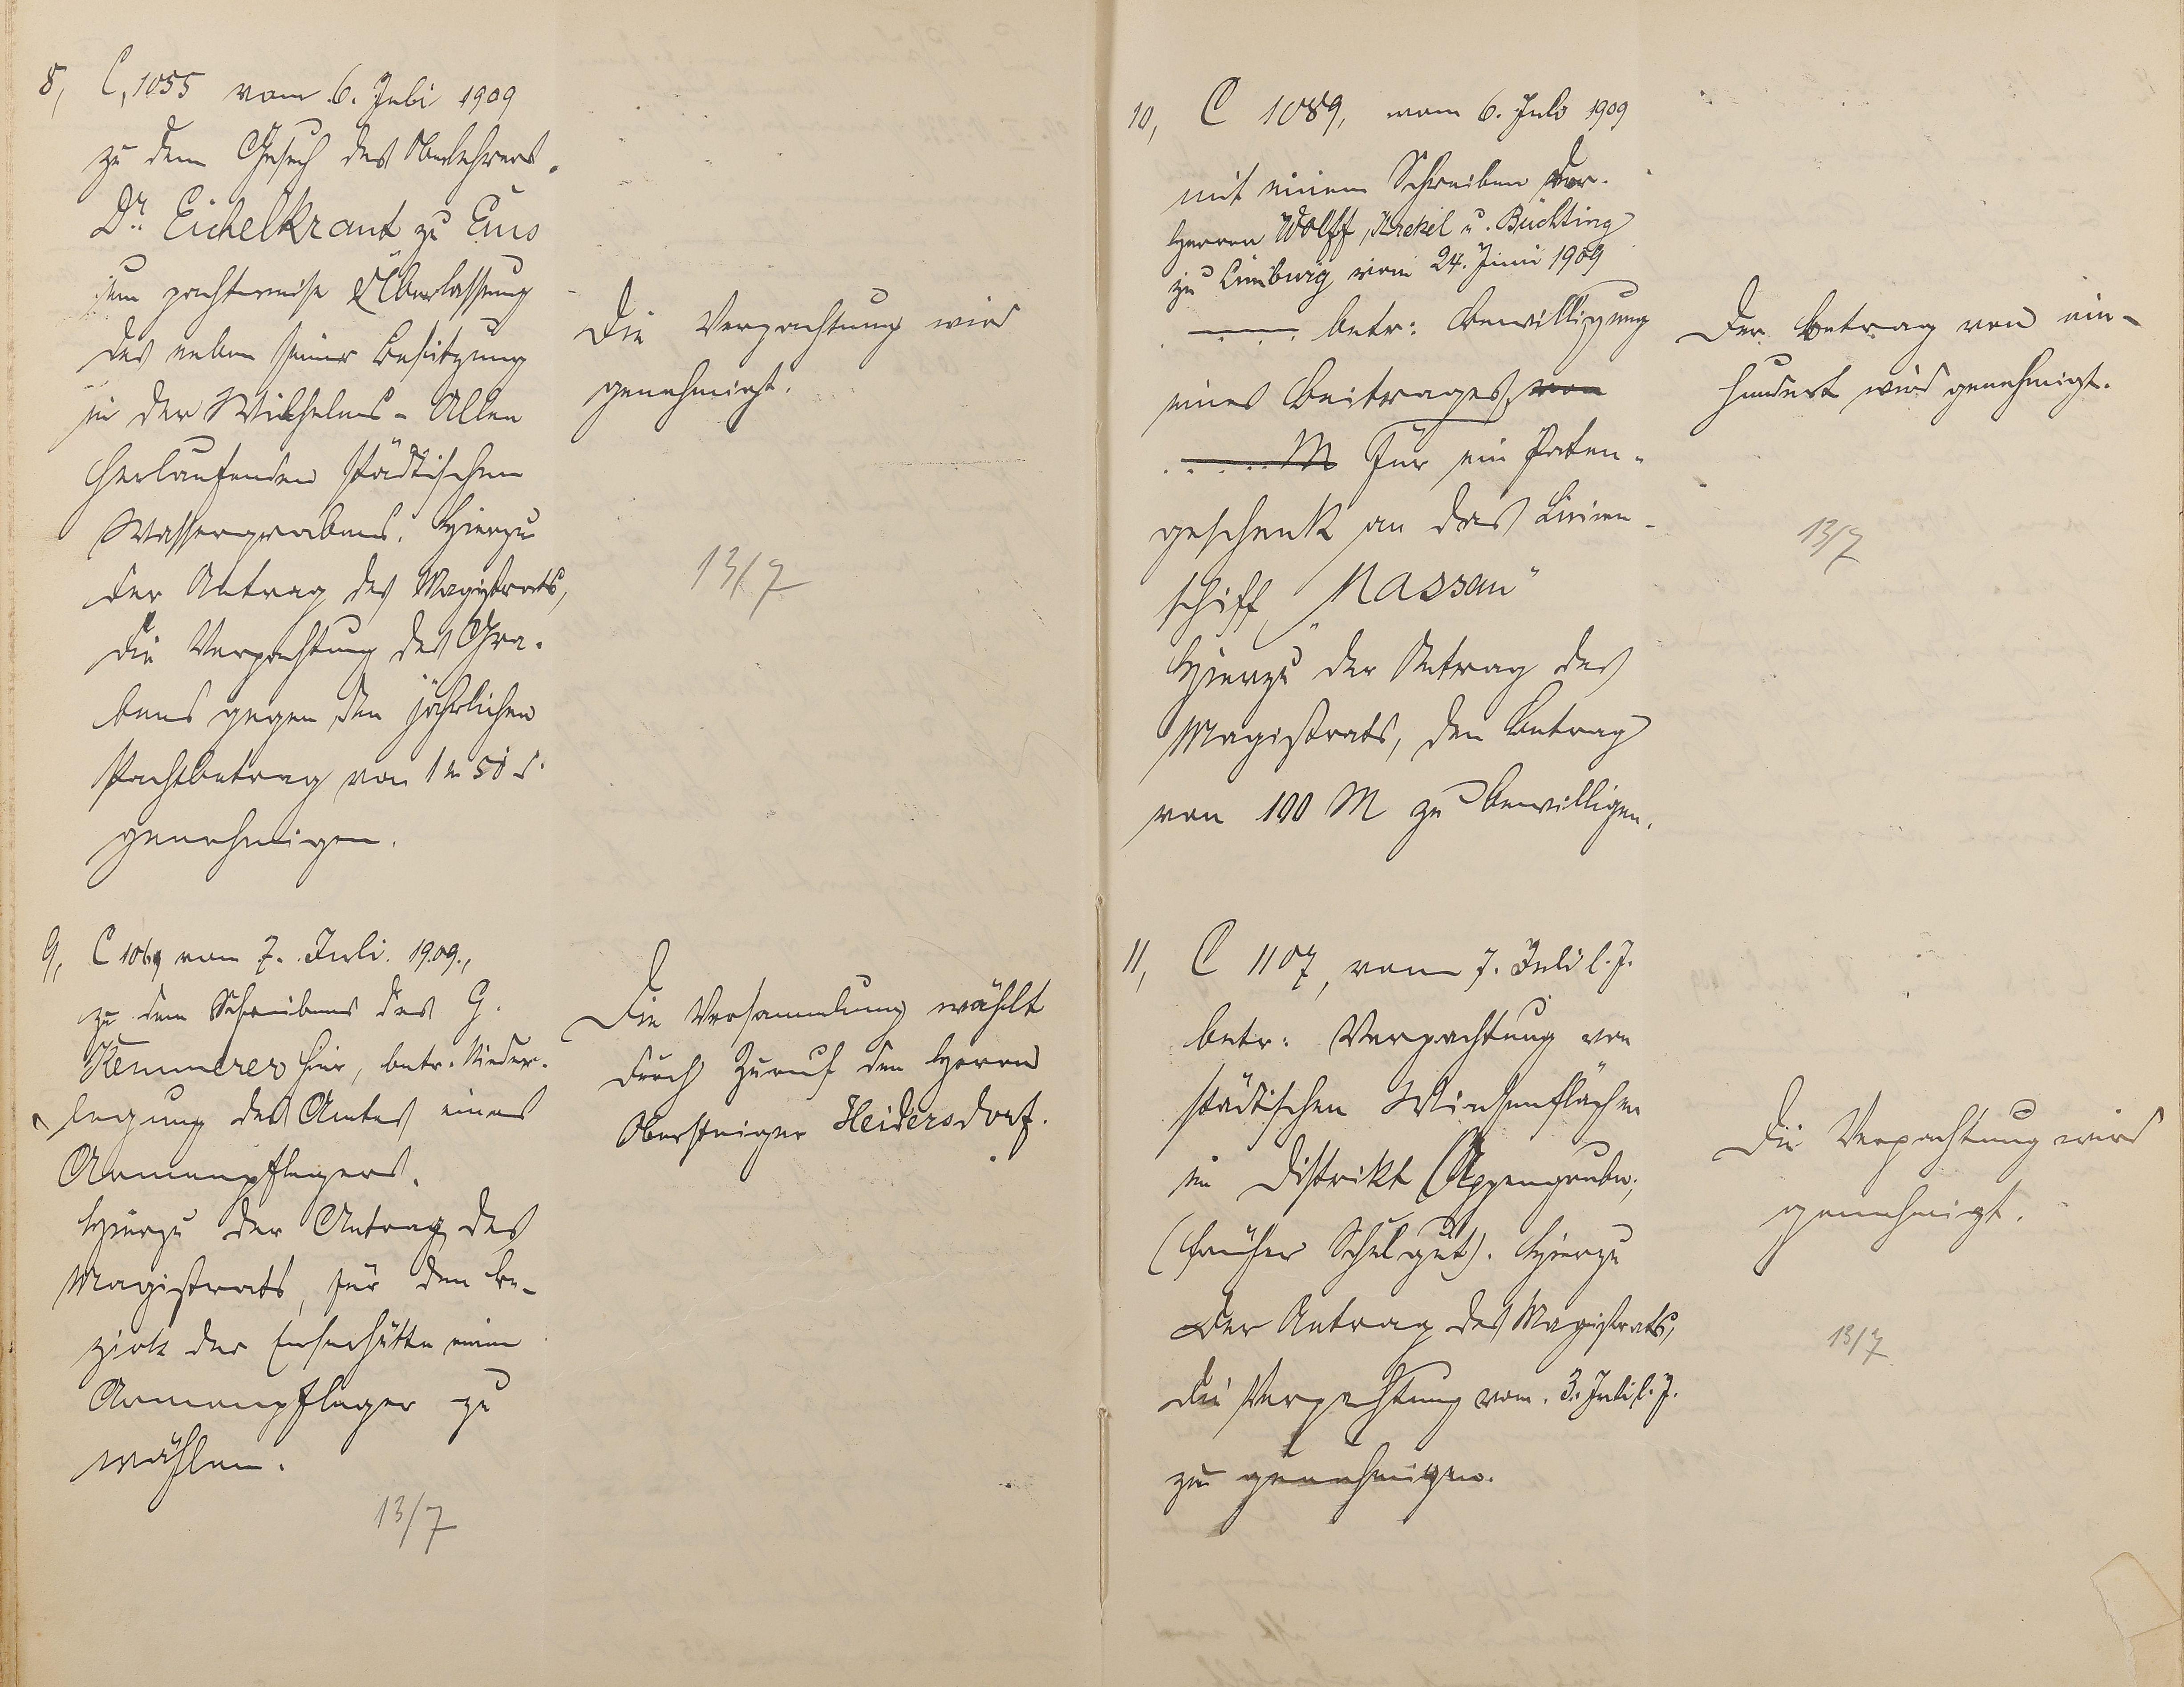 8, C, 1055 vom 6. Juli 1909
zu dem Gesuch des Oberlehrers
Dr. Eichelkraut zu Ems
um pachtweise Überlassung
des neben seiner Besitzung
in der Wilhelms-Allee
herlaufenden städtischen
Wassergrabens. Hierzu
der Antrag des Magistrats,
die Verpachtung des Gra-
bens gegen den jährlichen
Pachtbetrag von 1 M 50 S
genehmigen.
Die Verpachtung wird
genehmigt.
13/7
9, C 1069 vom 7. Juli. 1909.,
zu dem Schreibens des G.
Kemmerer hier, betr. Nieder-
legung des Amtes eines
Armenpflegers.
Hierzu der Antrag des
Magistrats, für den Be-
zirk der Emserhütte einen
Armenpfleger zu
wählen.
13/7
Die Versammlung wählt
durch Zuruf den Herrn
Obersteiger Heidersdorf.
10, C 1089, vom 6. Juli 1909
mit einem Schreiben der
Herren Wolff, Krekel u. Büchting
zu Limburg vom 24. Juni 1909
betr: Bewilligung
eines Beitrages von
M für ein Paten-
geschenk an das Linien-
schiff „Nassau"
Hierzu der Antrag des
Magistrats, den Betrag
von 100 M zu bewilligen.
Der Betrag von ein-
hundert wird genehmigt.
13/7
11, C 1107, vom 7. Juli l. J.
betr: Verpachtung von
städtischen Wiesenflächen
im Distrikt Oppengrube,
(früher Schulgut). Hierzu
der Antrag des Magistrats,
die Verpachtung vom 3. Juli l. J.
zu genehmigen.
Die Verpachtung wird
genehmigt.
13/7